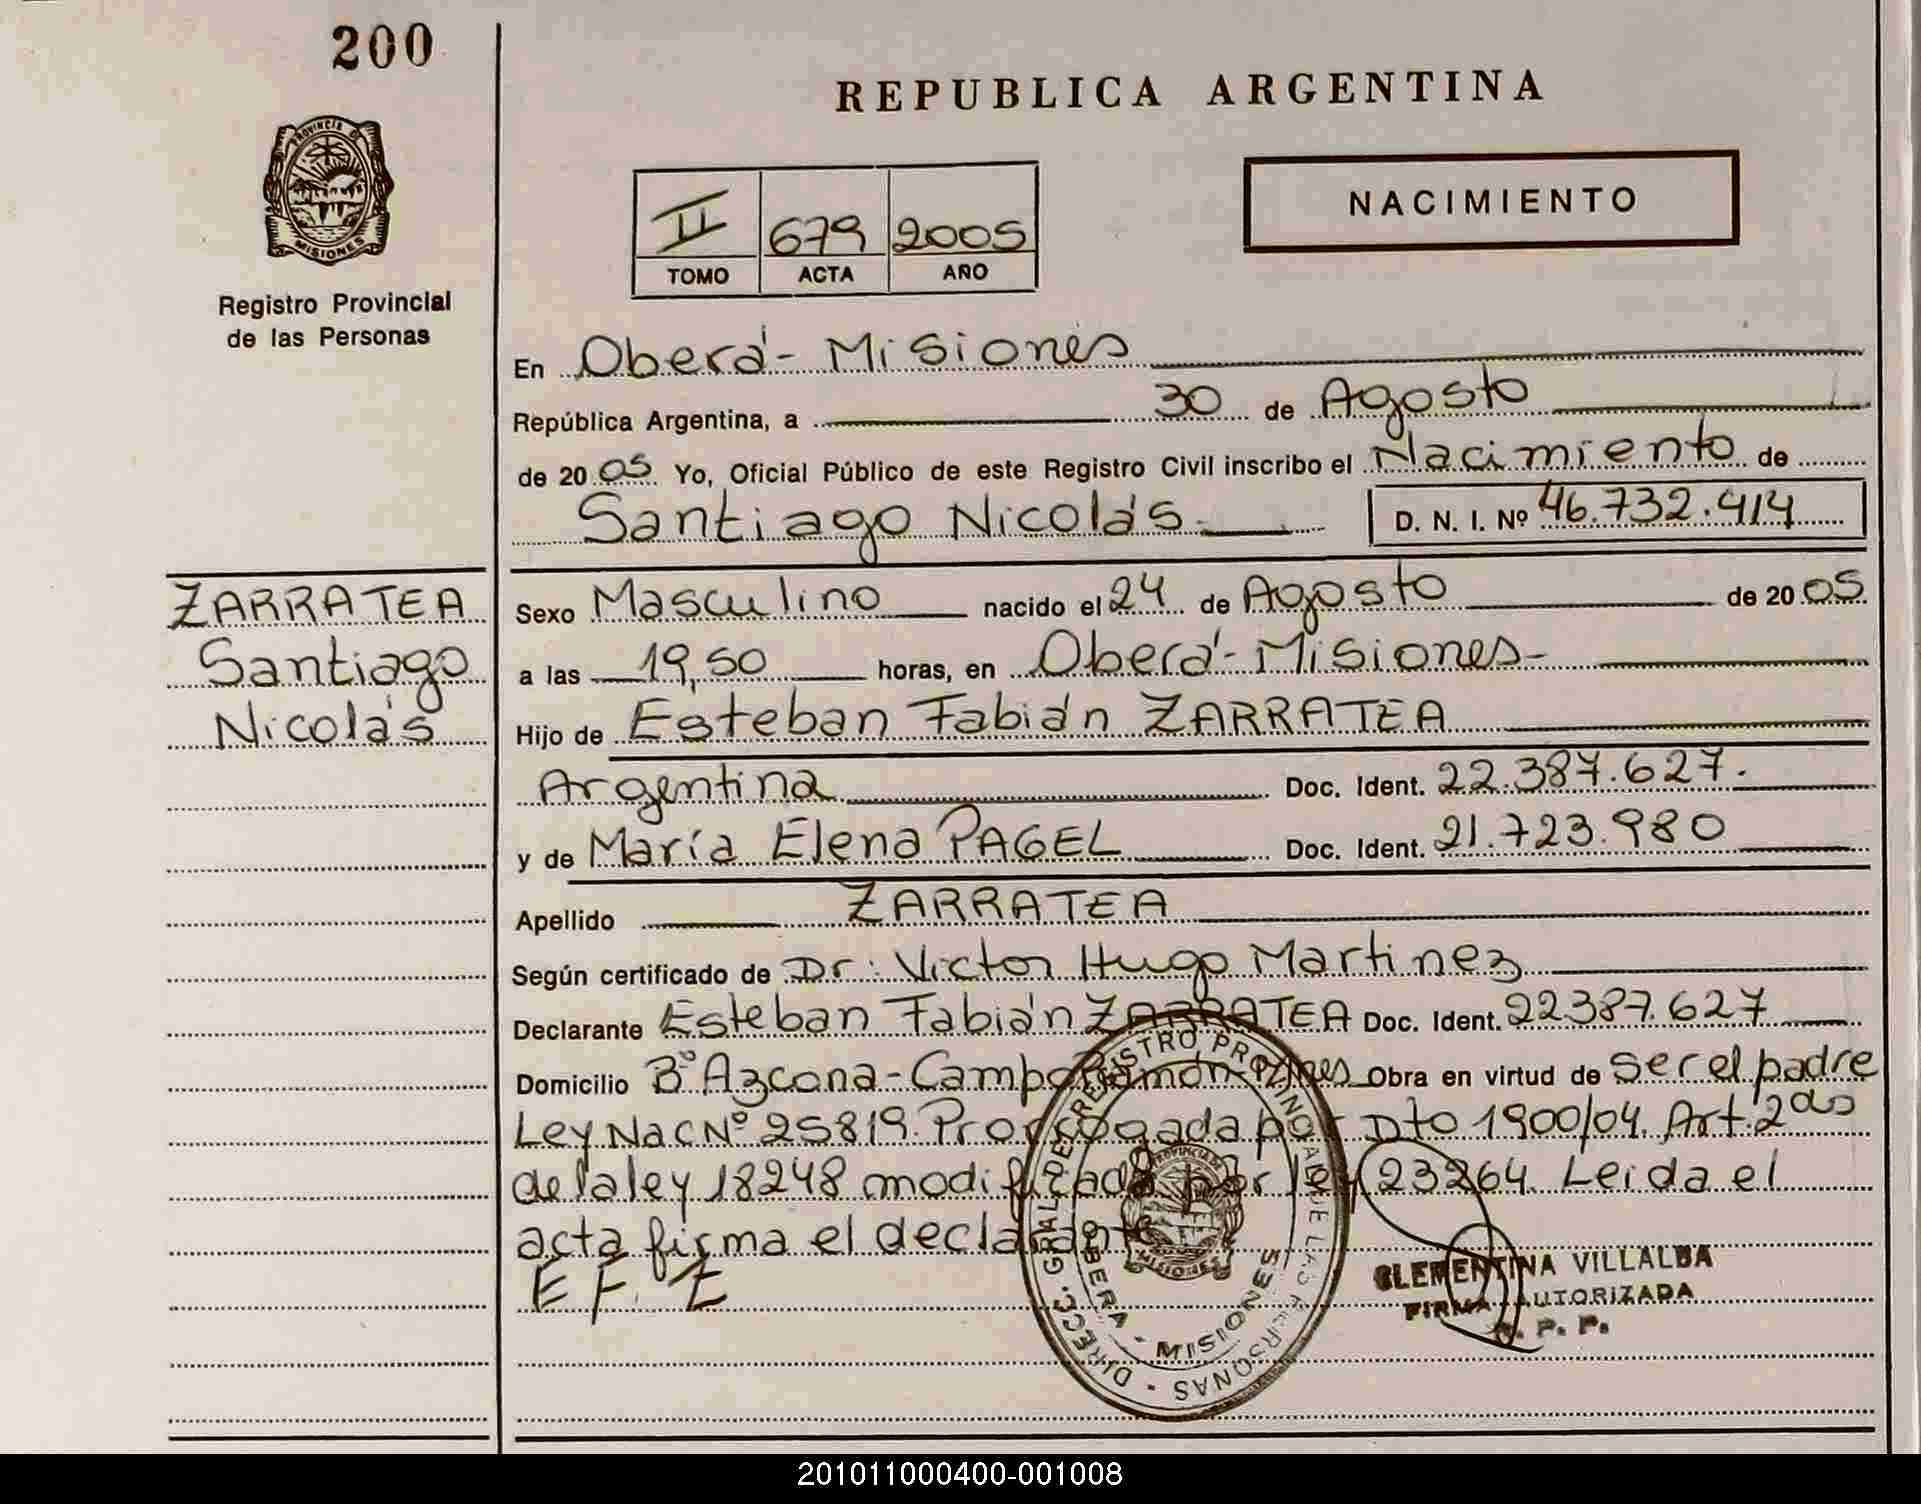 200
REPUBLICA ARGENTINA
PROVINCIA DE
MISIONES
Registro Provincial
de las Personas
II 679 2005
TOMO ACTA AÑO
NACIMIENTO
En Oberá - Misiones
República Argentina, a 30 de Agosto
de 2005 Yo, Oficial Público de este Registro Civil inscribo el Nacimiento de
Santiago Nicolás D. N. I. Nº 46.732.414
ZARRATEA
Santiago
Nicolás
Sexo Masculino nacido el 24 de Agosto de 2005
a las 19,50 horas, en Oberá - Misiones -
Hijo de Esteban Fabián ZARRATEA
Argentina Doc. Ident. 22.387.627.
y de María Elena PAGEL Doc. Ident. 21.723.980
Apellido ZARRATEA
Según certificado de Dr: Victor Hugo Martinez
Declarante Esteban Fabián ZARRATEA Doc. Ident. 22387.627
Domicilio Bº Azcona - Campo Ramón Obra en virtud de ser el padre
Ley Nac Nº 25819. Prorrogada por Dto 1900/04. Art. 2do
de la ley 18248 modificada por ley 23264. Leida el
acta firma el declarante
E F. Z
DIRECC. GRAL DE REGISTRO PROVINCIAL DE LAS PERSONAS
OBERA - MISIONES
PROVINCIA DE
MISIONES
CLEMENTINA VILLALBA
FIRMA AUTORIZADA
R. P. P.
201011000400-001008